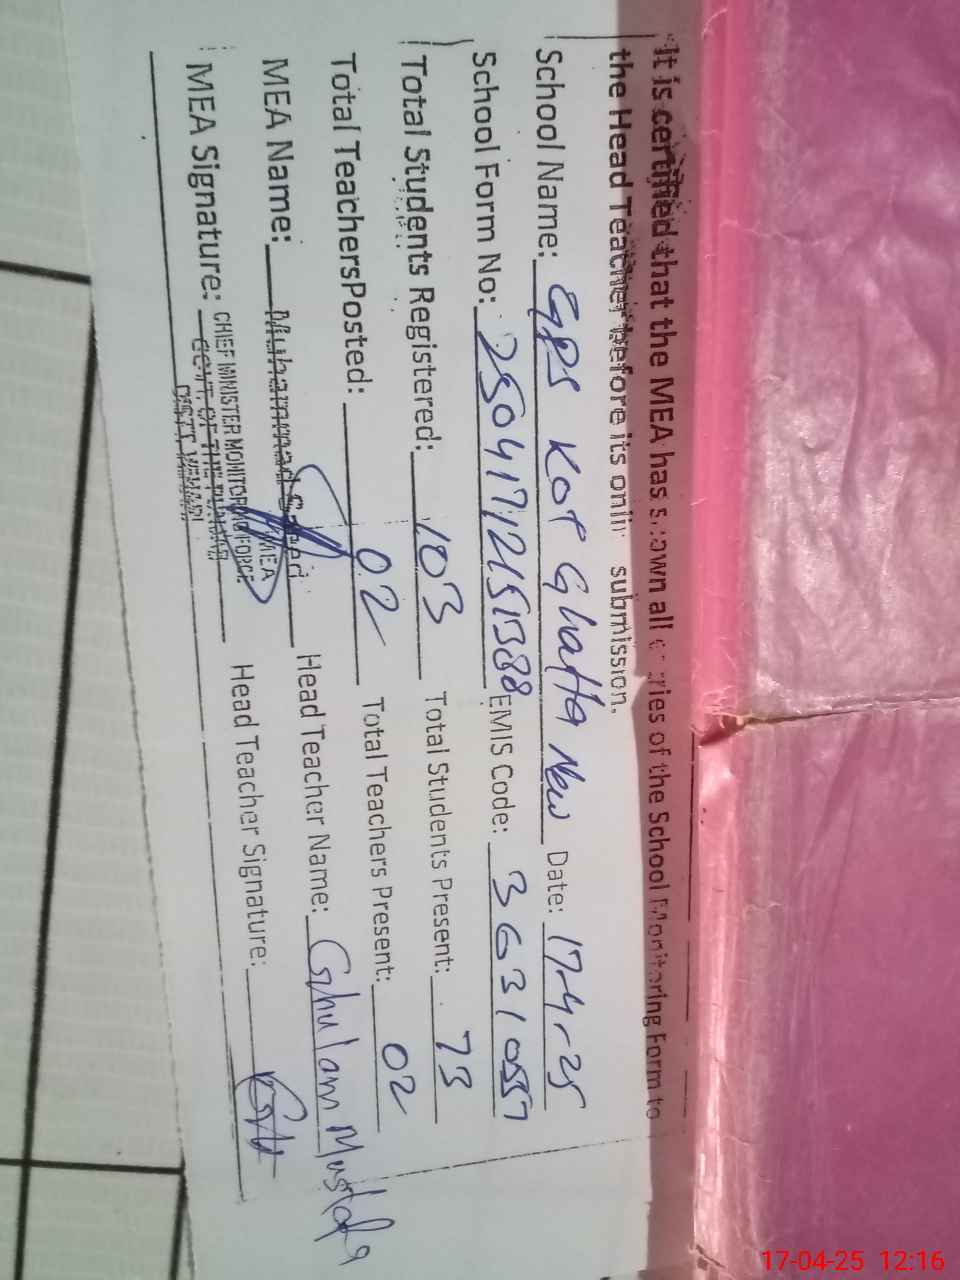 It is certified that the MEA has shown all entries of the School Monitoring Form to
the Head Teacher before its online submission.
School Name: GPS Kot Ghatta New Date: 17-4-25
School Form No: EMIS Code:
Total Students Registered: 103 Total Students Present: 73
Total TeachersPosted: 02 Total Teachers Present: 02
MEA Name: Muhammad Saeed Head Teacher Name: Ghulam Mustafa
MEA Signature: Head Teacher Signature:
MEA
CHIEF MINISTER MONITORING FORCE
GOVT. OF THE PUNJAB
DISTT. VEHARI
17-04-25 12:16